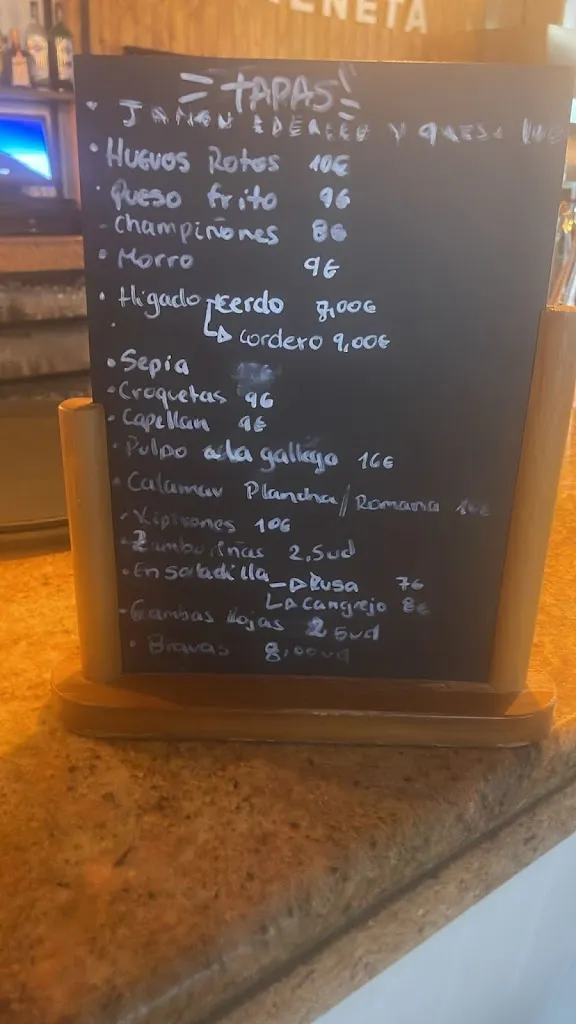 TAPAS
JAMON IBERICO Y QUESO
Huevos Rotos 10€
Queso frito 9€
Champiñones 8€
Morro 9€
Higado cerdo 8,00€
cordero 9,00€
Sepia
Croquetas 9€
Capellan 9€
Pulpo a la gallego 16€
Calamar Plancha/Romana
Xipirones 10€
Zamburiñas 2,5ud
Ensaladilla Rusa 7€
Cangrejo 8€
Gambas Rojas 2,5ud
Bravas 8,00ud